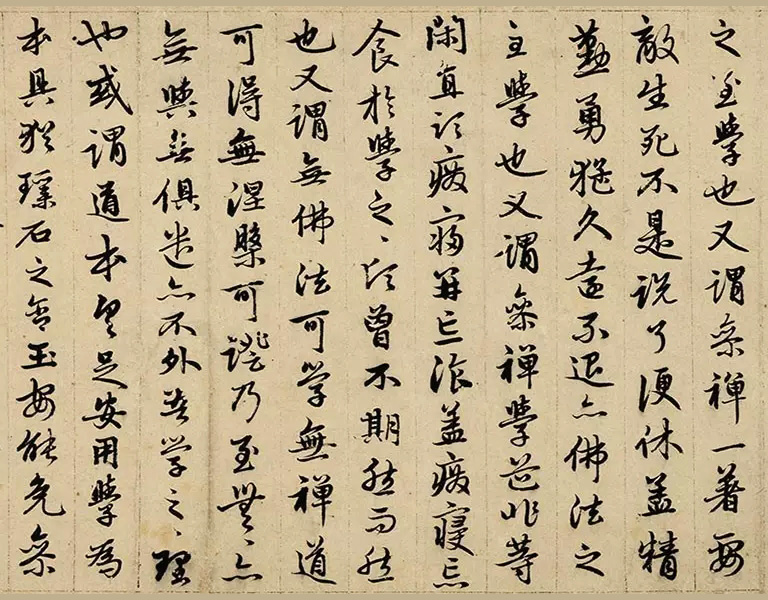 之至學也又謂參禪一著要
敵生死不是說了便休蓋精
勤勇猛久遠不退亦佛法之
主學也又謂參禪學道非等
閑直須廢寢并忘飡蓋廢寢忘
食於學之之須曾不期然而然
也又謂無佛法可學無禪道
可得無涅槃可證乃至無無亦
無與無俱遣亦不外吾學之之理
也或謂道本具足安用學為
本具猶璞石之含玉要能免參